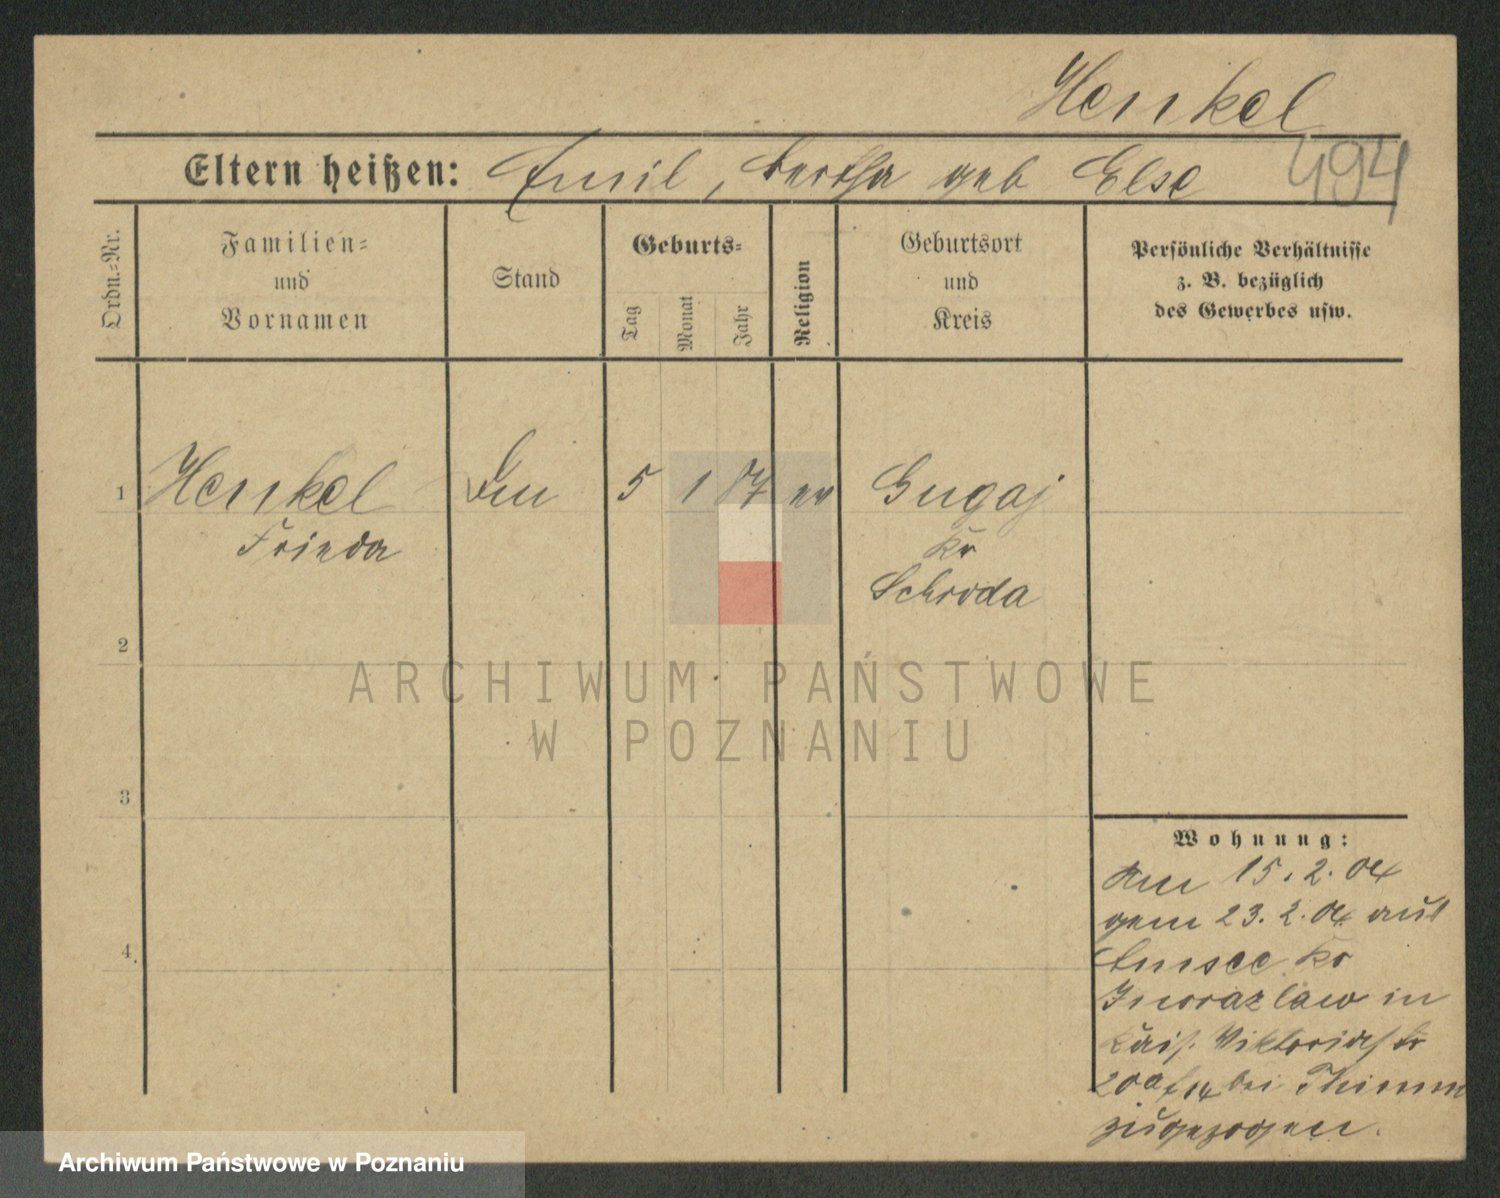 Henkel
494
Eltern heißen: Emil, Bertha geb Else
Ordn.=Nr.
Familien=
und
Vornamen
Stand
Geburts=
Tag
Monat
Jahr
Religion
Geburtsort
und
Kreis
Persönliche Verhältnisse
z. B. bezüglich
des Gewerbes usw.
1 Henkel 5 1 87 ev Gugaj
Frieda
Kr
Schroda
2
3
4.
Wohnung:
Am 15.2.04
gem 23.2.04 aus
Kr
Inorazlaw in
Kais. Viktoriastr
bei Thimm
zugezogen.
ARCHIWUM PAŃSTWOWE
W POZNANIU
Archiwum Państwowe w Poznaniu